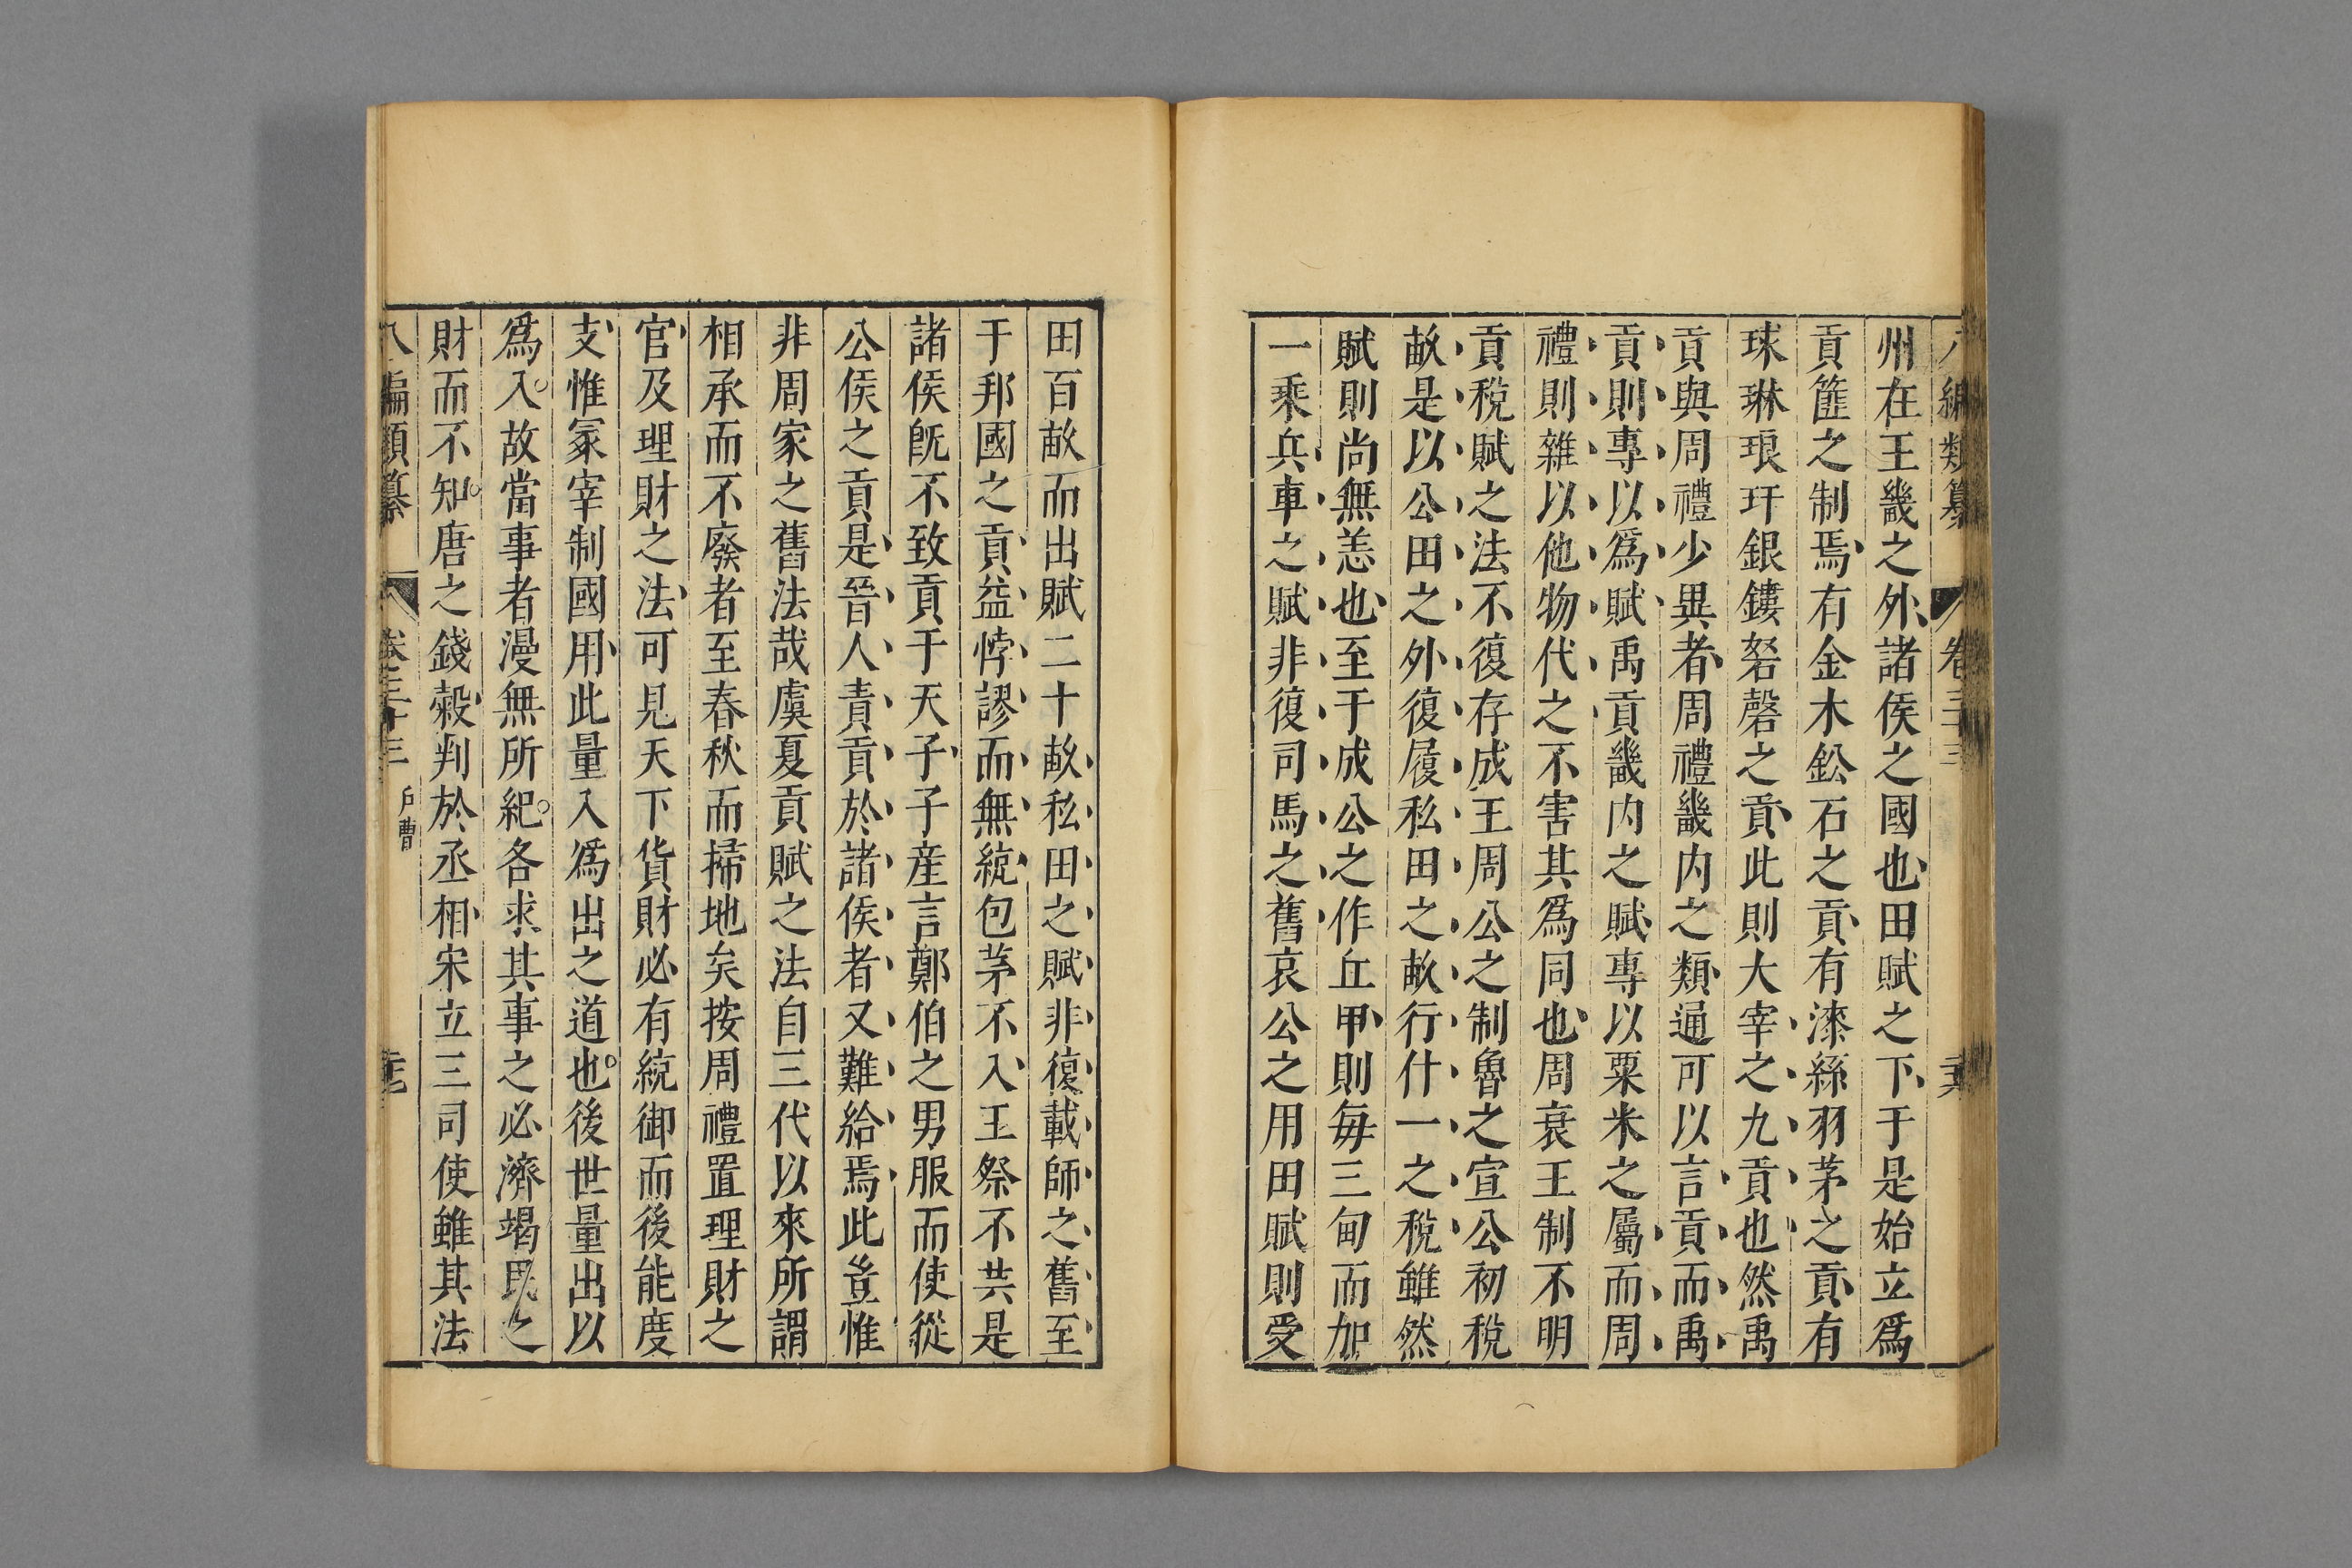 八編類纂 卷三十三 三十六
州在王畿之外諸侯之國也田賦之下于是始立爲
貢篚之制焉有金木鈆石之貢有漆絲羽茅之貢有
球琳琅玕銀鏤砮磬之貢此則大宰之九貢也然禹
貢與周禮少異者周禮畿内之類通可以言貢而禹
貢則專以爲賦禹貢畿内之賦專以粟米之屬而周
禮則雜以他物代之不害其爲同也周衰王制不明
貢稅賦之法不復存成王周公之制魯之宣公初稅
畝是以公田之外復履私田之畝行什一之稅雖然
賦則尚無恙也至于成公之作丘甲則每三甸而加
一乘兵車之賦非復司馬之舊哀公之用田賦則受
田百畝而出賦二十畝私田之賦非復載師之舊至
于邦國之貢益悖謬而無統包茅不入王祭不共是
諸侯旣不致貢于天子子産言鄭伯之男服而使從
公侯之貢是晉人責貢於諸侯者又難給焉此豈惟
非周家之舊法哉虞夏貢賦之法自三代以來所謂
相承而不廢者至春秋而掃地矣按周禮置理財之
官及理財之法可見天下貨財必有統御而後能度
支惟冢宰制國用此量入爲出之道也後世量出以
爲入故當事者漫無所紀各求其事之必濟竭民之
財而不知唐之錢穀判於丞相宋立三司使雖其法
八編類纂 卷三十三 戶曹 三十七